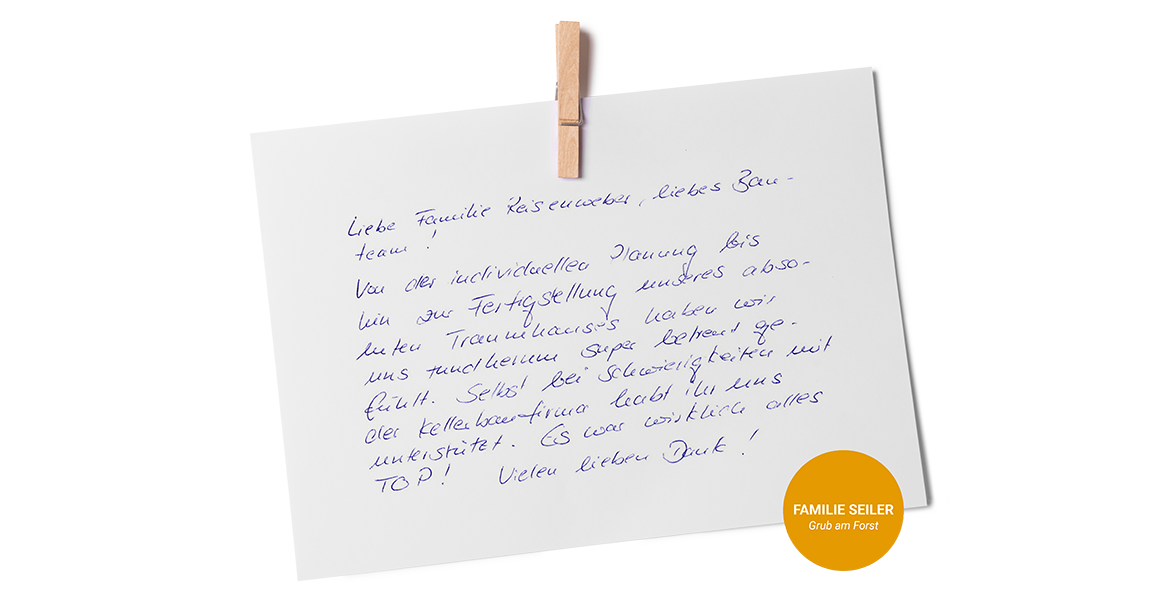 Liebe Familie Reisenweber, liebes Bau-
team!
Von der individuellen Planung bis
hin zur Fertigstellung unseres abso-
luten Traumhauses haben wir
uns rundherum super betreut ge-
fühlt. Selbst bei Schwierigkeiten mit
der Kellerbaufirma habt ihr uns
unterstützt. Es war wirklich alles
TOP! Vielen lieben Dank!
FAMILIE SEILER
Grub am Forst